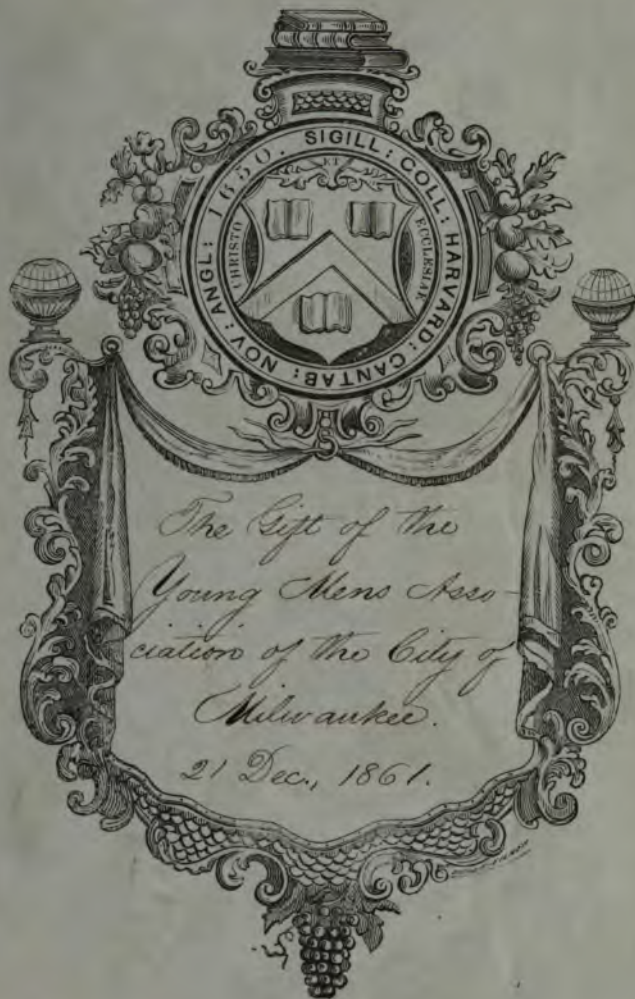 SIGILL : COLL : HARVARD : CANTAB : NOV : ANGL : 1650.
CHRISTO
ET
ECCLESIAE
The Gift of the
Young Mens Asso-
ciation of the City of
Milwaukee.
21 Dec., 1861.